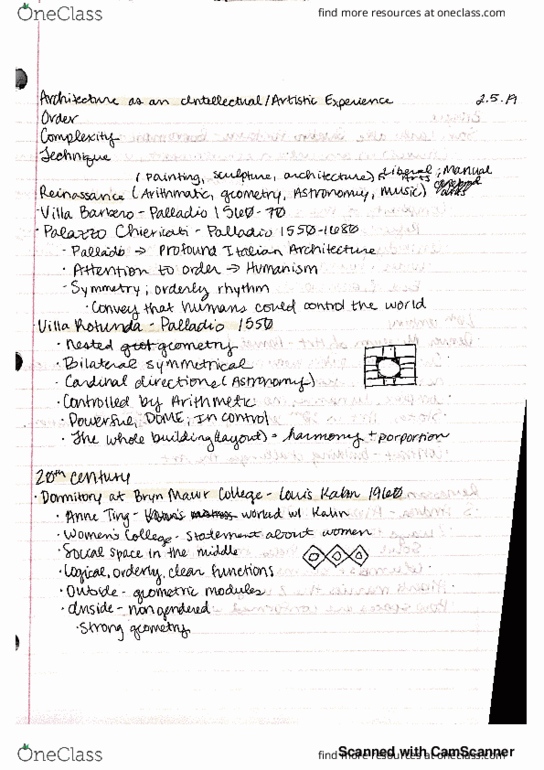 OneClass
find more resources at oneclass.com
Architecture as an Intellectual/Artistic Experience 2.5.19
Order
Complexity
Technique
(Painting, sculpture, architecture) Liberal Arts ; Manual
Reinassance (Arithmatic, geometry, Astronomy, music)
· Villa Barbero - Palladio 1560-70
· Palazzo Chiericati - Palladio 1550-1680
- Pallado → Profound Italian Architecture
· Attention to order → Humanism
- Symmetry; orderly rhythm
· Convey that humans could control the world
Villa Rotunda - Palladio 1550
· nested geometry
· Bilateral symmetrical
· Cardinal directione (Astronomy)
· Controlled by Arithmetic
· Powerful; DOME; In control
· The whole building (layout) = harmony + porportion
20th century
· Dormitory at Bryn Mawr College - Louis Kahn 1960
· Anne Tiny - worked w/ Kahn
· Women's College - statement about women
· Social space in the middle
· Logical, orderly, clear functions
· Outside - geometric modules
· Inside - non gendered
· Strong geometry
OneClass
find more resources at oneclass.com
Scanned with CamScanner